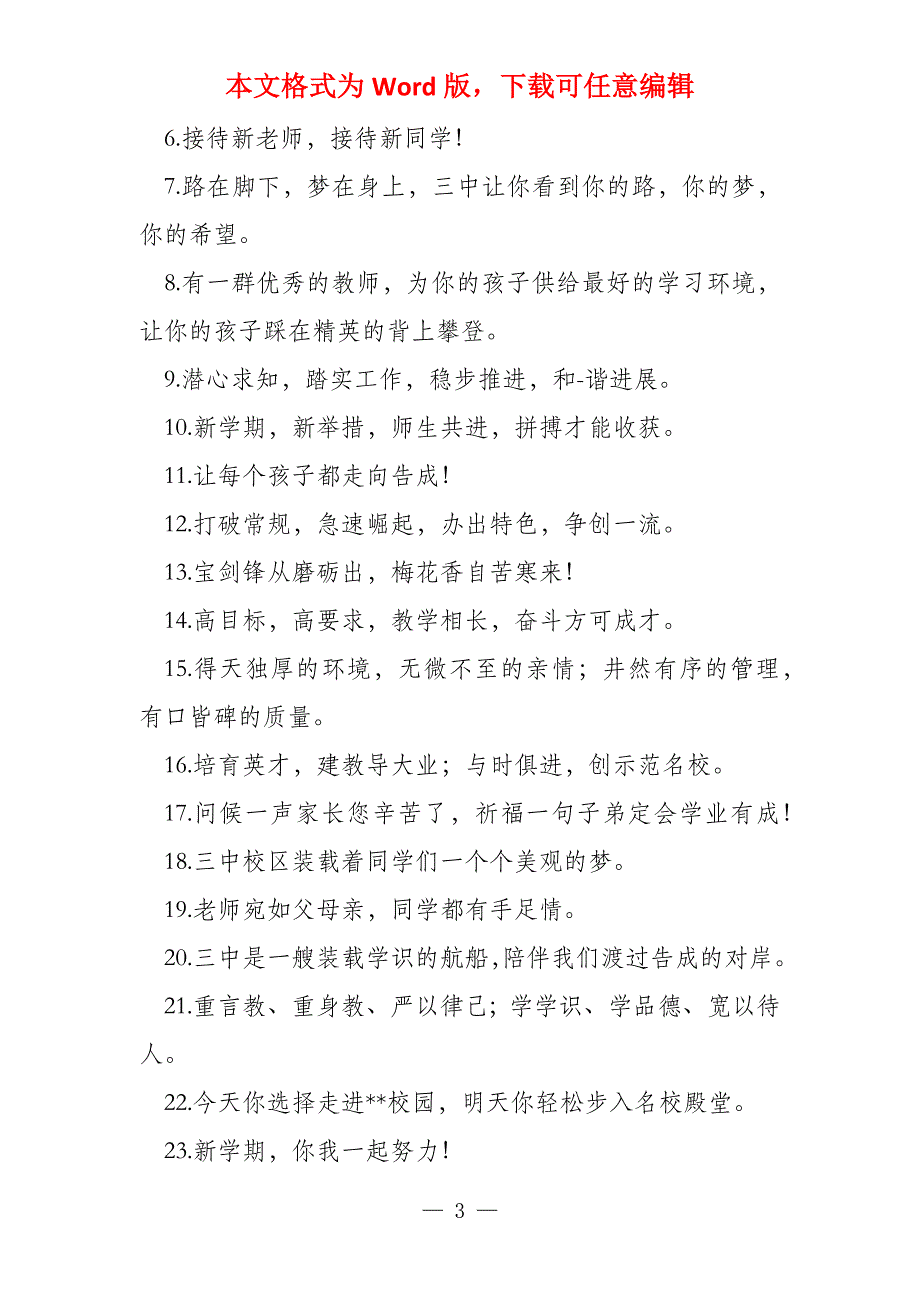 本文格式为 Word 版，下载可任意编辑
6.接待新老师，接待新同学！
7.路在脚下，梦在身上，三中让你看到你的路，你的梦，
你的希望。
8.有一群优秀的教师，为你的孩子供给最好的学习环境，
让你的孩子踩在精英的背上攀登。
9.潜心求知，踏实工作，稳步推进，和-谐进展。
10.新学期，新举措，师生共进，拼搏才能收获。
11.让每个孩子都走向告成！
12.打破常规，急速崛起，办出特色，争创一流。
13.宝剑锋从磨砺出，梅花香自苦寒来！
14.高目标，高要求，教学相长，奋斗方可成才。
15.得天独厚的环境，无微不至的亲情；井然有序的管理，
有口皆碑的质量。
16.培育英才，建教导大业；与时俱进，创示范名校。
17.问候一声家长您辛苦了，祈福一句子弟定会学业有成！
18.三中校区装载着同学们一个个美观的梦。
19.老师宛如父母亲，同学都有手足情。
20.三中是一艘装载学识的航船,陪伴我们渡过告成的对岸。
21.重言教、重身教、严以律己；学学识、学品德、宽以待
人。
22.今天你选择走进**校园，明天你轻松步入名校殿堂。
23.新学期，你我一起努力！
— 3 —